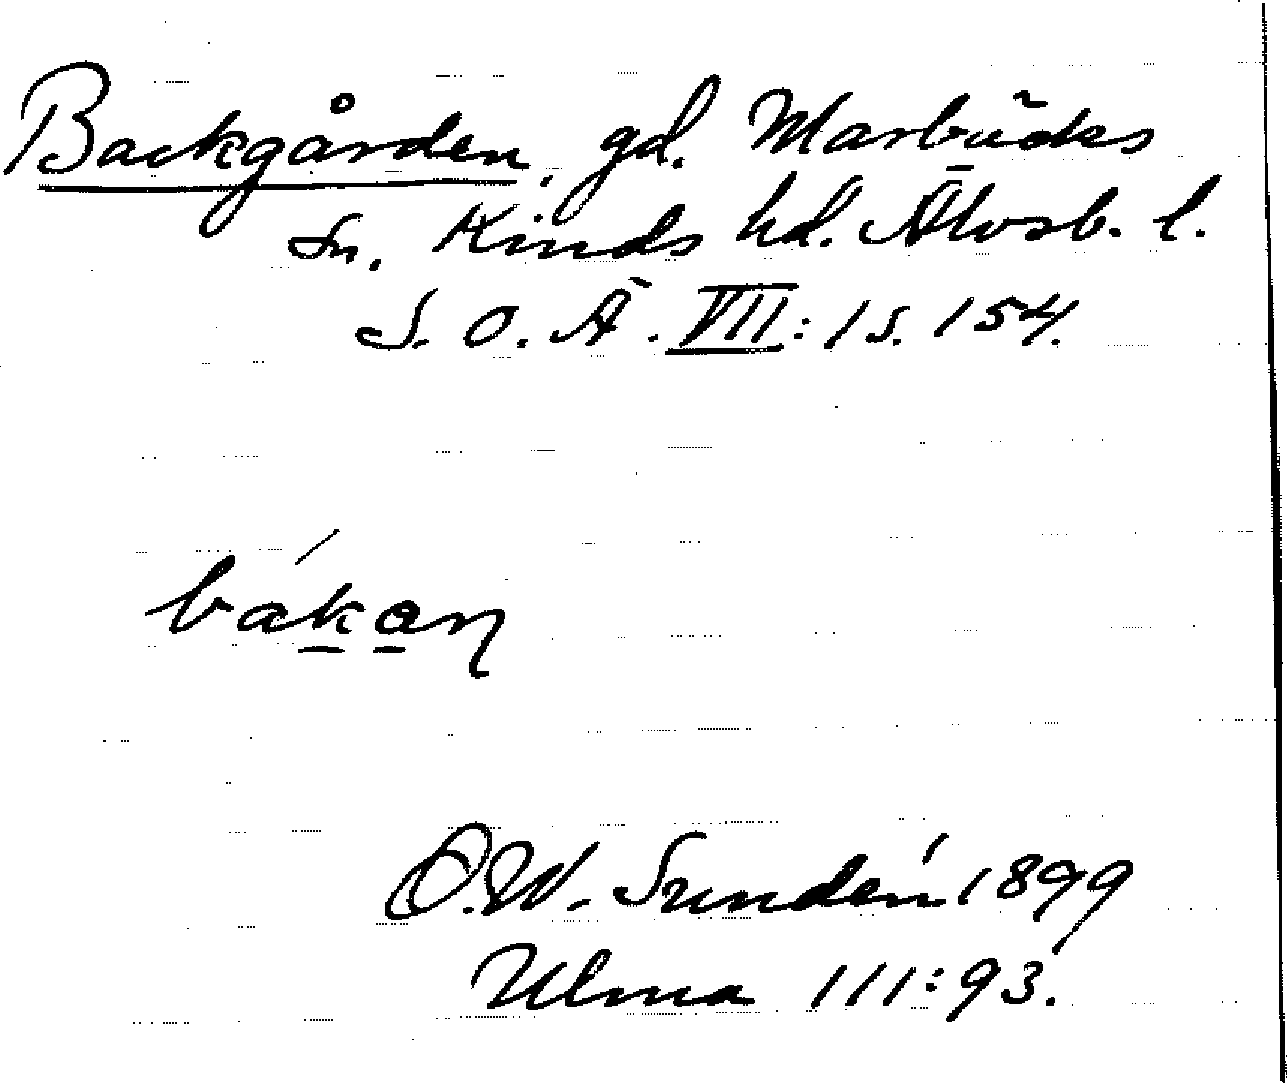 Backgården, gd. Marbäcks
Sn. Kinds hd. Älvsb. l.
S. O. Ä. VII: 1 s. 154.
bákan
O.W. Sundén 1899
Ulma 111:93.